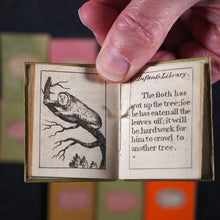 Infants Library.
The sloth has
got up the tree; see
he has eaten all the
leaves off; it will
be hard work for
him to crawl to
another tree.